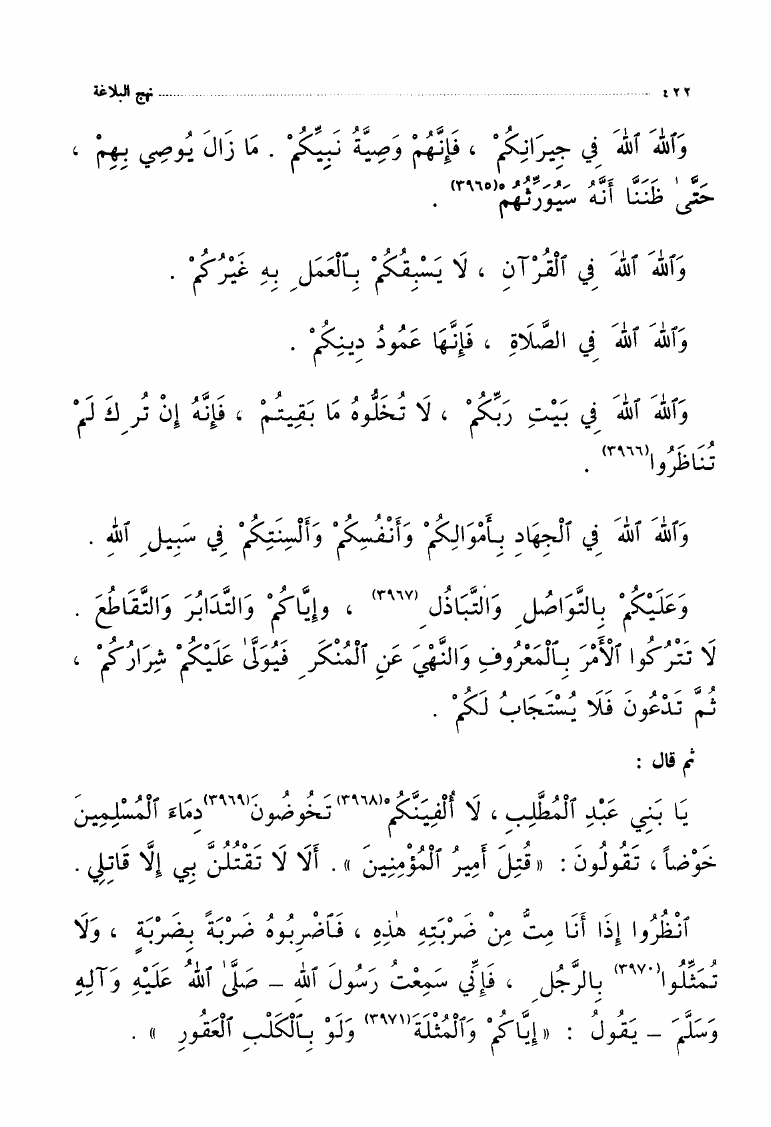 ٤٢٢ ........ نهج البلاغة
وَٱللهَ ٱللهَ فِي جِيرَانِكُمْ ، فَإِنَّهُمْ وَصِيَّةُ نَبِيِّكُمْ . مَا زَالَ يُوصِي بِهِمْ ،
حَتَّىٰ ظَنَنَّا أَنَّهُ سَيُوَرِّثُهُمْ(٣٩٦٥) .
وَٱللهَ ٱللهَ فِي ٱلْقُرْآنِ ، لَا يَسْبِقُكُمْ بِٱلْعَمَلِ بِهِ غَيْرُكُمْ .
وَٱللهَ ٱللهَ فِي الصَّلَاةِ ، فَإِنَّهَا عَمُودُ دِينِكُمْ .
وَٱللهَ ٱللهَ فِي بَيْتِ رَبِّكُمْ ، لَا تُخَلُّوهُ مَا بَقِيتُمْ ، فَإِنَّهُ إِنْ تُرِكَ لَمْ
تُنَاظَرُوا(٣٩٦٦) .
وَٱللهَ ٱللهَ فِي ٱلْجِهَادِ بِأَمْوَالِكُمْ وَأَنْفُسِكُمْ وَأَلْسِنَتِكُمْ فِي سَبِيلِ ٱللهِ .
وَعَلَيْكُمْ بِالتَّوَاصُلِ وَالتَّبَاذُلِ(٣٩٦٧) ، وإِيَّاكُمْ وَالتَّدَابُرَ وَالتَّقَاطُعَ .
لَا تَتْرُكُوا ٱلْأَمْرَ بِٱلْمَعْرُوفِ وَالنَّهْيَ عَنِ ٱلْمُنْكَرِ فَيُوَلَّىٰ عَلَيْكُمْ شِرَارُكُمْ ،
ثُمَّ تَدْعُونَ فَلَا يُسْتَجَابُ لَكُمْ .
ثم قال :
يَا بَنِي عَبْدِ ٱلْمُطَّلِبِ ، لَا أُلْفِيَنَّكُمْ(٣٩٦٨) تَخُوضُونَ(٣٩٦٩) دِمَاءَ ٱلْمُسْلِمِينَ
خَوْضاً ، تَقُولُونَ : « قُتِلَ أَمِيرُ ٱلْمُؤْمِنِينَ » . أَلَا لَا تَقْتُلُنَّ بِي إِلَّا قَاتِلِي .
ٱنْظُرُوا إِذَا أَنَا مِتُّ مِنْ ضَرْبَتِهِ هٰذِهِ ، فَٱضْرِبُوهُ ضَرْبَةً بِضَرْبَةٍ ، وَلَا
تُمَثِّلُوا(٣٩٧٠) بِالرَّجُلِ ، فَإِنِّي سَمِعْتُ رَسُولَ ٱللهِ – صَلَّىٰ ٱللهُ عَلَيْهِ وَآلِهِ
وَسَلَّمَ – يَقُولُ : « إِيَّاكُمْ وَٱلْمُثْلَةَ(٣٩٧١) وَلَوْ بِٱلْكَلْبِ ٱلْعَقُورِ » .